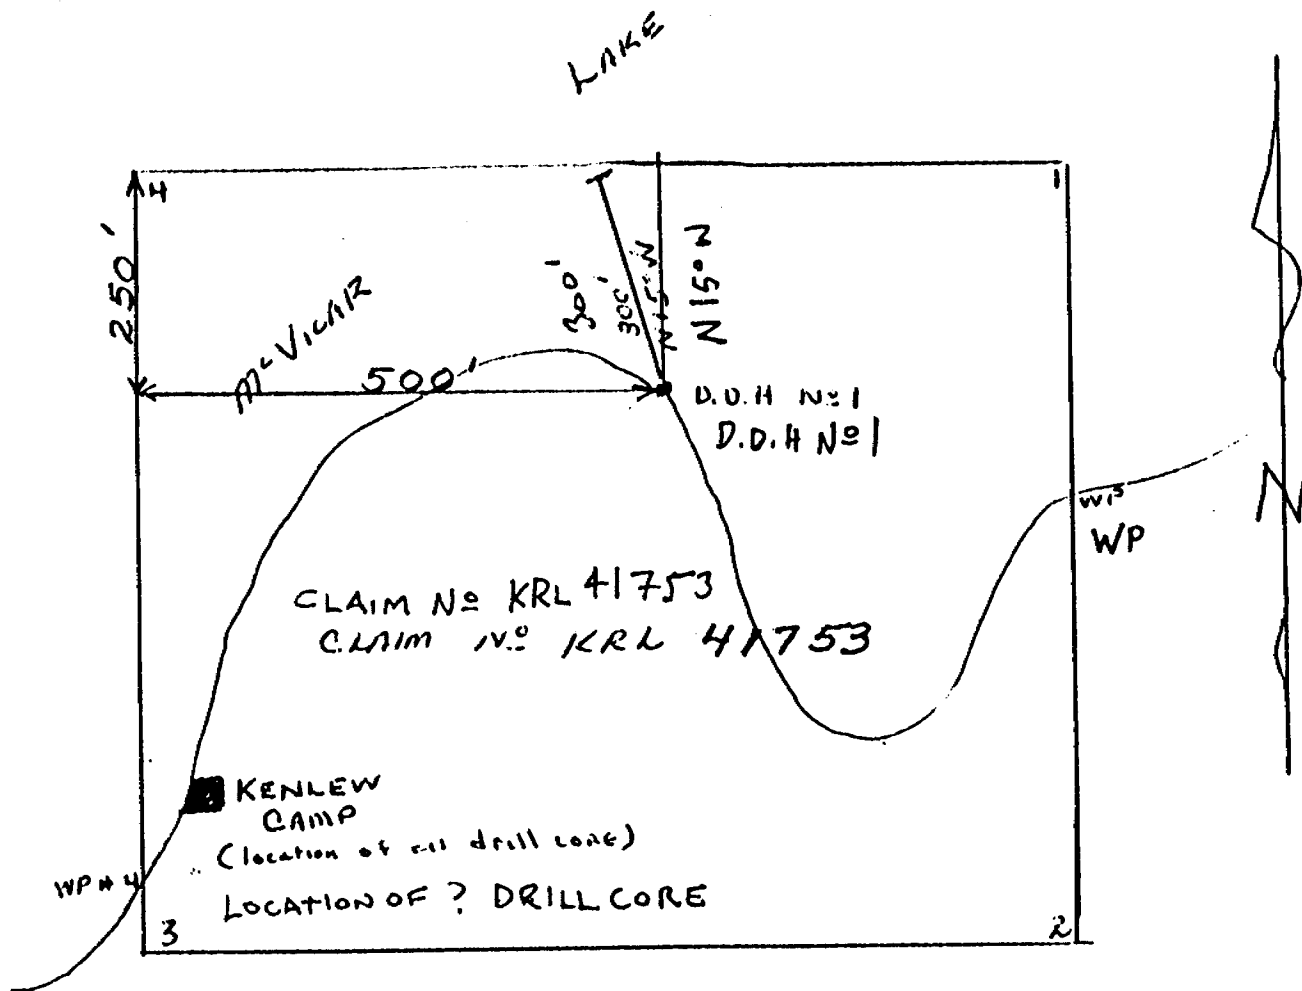 LAKE
4
1
250'
McVICAR
500'
300'
300'
N15°W
N15°W
D.D.H №1
D.D.H №1
N
WP
CLAIM № KRL 41753
CLAIM № KRL 41753
KENLEW
CAMP
(location of all drill core)
WP # 4
LOCATION OF ? DRILL CORE
3
2